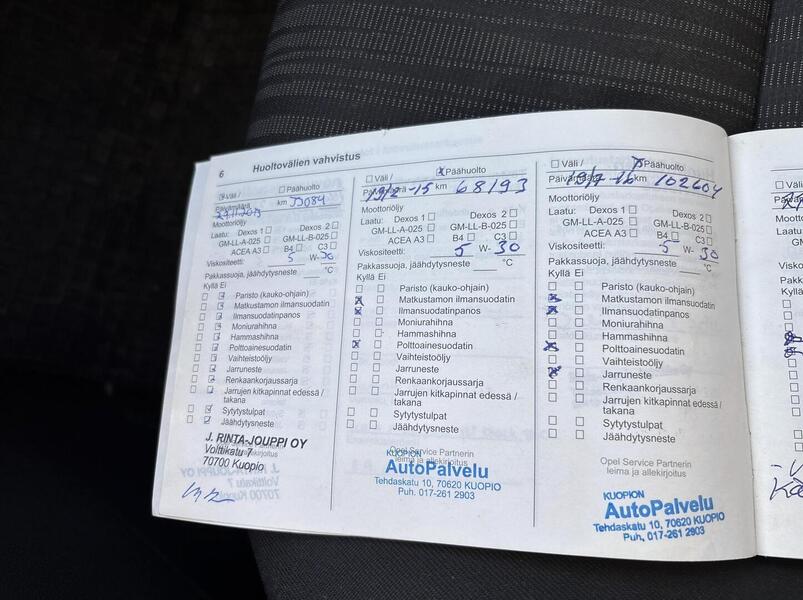 6
Huoltovälien vahvistus
Väli /
Päähuolto
Päivämäärä
27.11.2013
km
Moottoriöljy
Laatu:
Dexos 1
Dexos 2
GM-LL-A-025
GM-LL-B-025
ACEA A3
B4
C3
Viskositeetti:
5 W- 30
Pakkassuoja, jäähdytysneste
°C
Kyllä Ei
Paristo (kauko-ohjain)
Matkustamon ilmansuodatin
Ilmansuodatinpanos
Moniurahihna
Hammashihna
Polttoainesuodatin
Vaihteistoöljy
Jarruneste
Renkaankorjaussarja
Jarrujen kitkapinnat edessä /
takana
Sytytystulpat
Jäähdytysneste
J. RINTA-JOUPPI OY
Volttikatu 7
70700 Kuopio
Väli /
Päähuolto
Päivämäärä
19/2 -15
km
68193
Moottoriöljy
Laatu:
Dexos 1
Dexos 2
GM-LL-A-025
GM-LL-B-025
ACEA A3
B4
C3
Viskositeetti:
5 W- 30
Pakkassuoja, jäähdytysneste
°C
Kyllä Ei
Paristo (kauko-ohjain)
Matkustamon ilmansuodatin
Ilmansuodatinpanos
Moniurahihna
Hammashihna
Polttoainesuodatin
Vaihteistoöljy
Jarruneste
Renkaankorjaussarja
Jarrujen kitkapinnat edessä /
takana
Sytytystulpat
Jäähdytysneste
Opel Service Partnerin
leima ja allekirjoitus
KUOPION
AutoPalvelu
Tehdaskatu 10, 70620 KUOPIO
Puh. 017-261 2903
Väli /
Päähuolto
Päivämäärä
19/7 -16
km
102604
Moottoriöljy
Laatu:
Dexos 1
Dexos 2
GM-LL-A-025
GM-LL-B-025
ACEA A3
B4
C3
Viskositeetti:
5 W- 30
Pakkassuoja, jäähdytysneste
°C
Kyllä Ei
Paristo (kauko-ohjain)
Matkustamon ilmansuodatin
Ilmansuodatinpanos
Moniurahihna
Hammashihna
Polttoainesuodatin
Vaihteistoöljy
Jarruneste
Renkaankorjaussarja
Jarrujen kitkapinnat edessä /
takana
Sytytystulpat
Jäähdytysneste
Opel Service Partnerin
leima ja allekirjoitus
KUOPION
AutoPalvelu
Tehdaskatu 10, 70620 KUOPIO
Puh, 017-261 2903